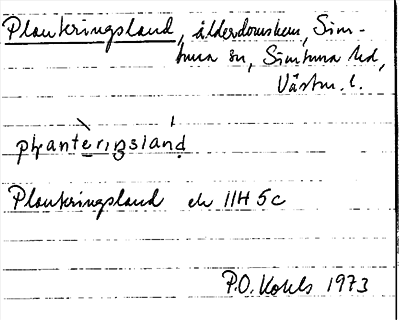 Planteringsland, ålderdomshem, Sim-
tuna sn, Simtuna hd,
Västm. l.
plantèringslánd
Planteringsland ek 11H 5c
P.O. Kohls 1973